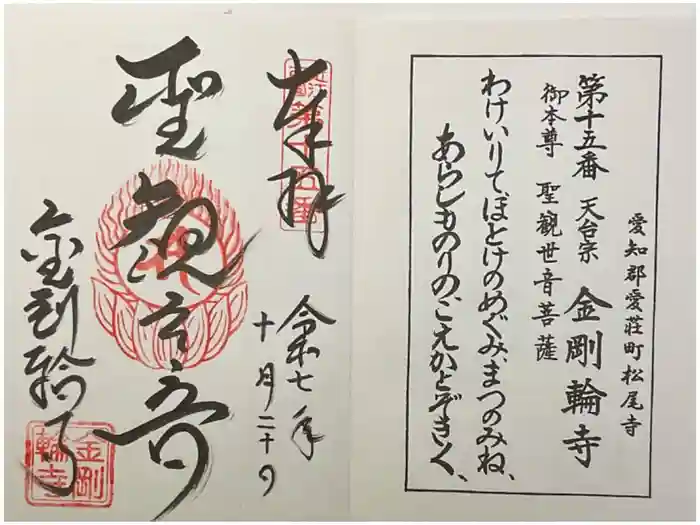 愛知郡愛荘町松尾寺
第十五番 天台宗 金剛輪寺
御本尊 聖観世音菩薩
わけいりて、ほとけのめぐみ、まつのみね、
あらしものりのこえかとぞきく、
奉拝
近江西国第十五番
令和七年
十月二十日
聖観世音
金剛輪寺
金剛輪寺